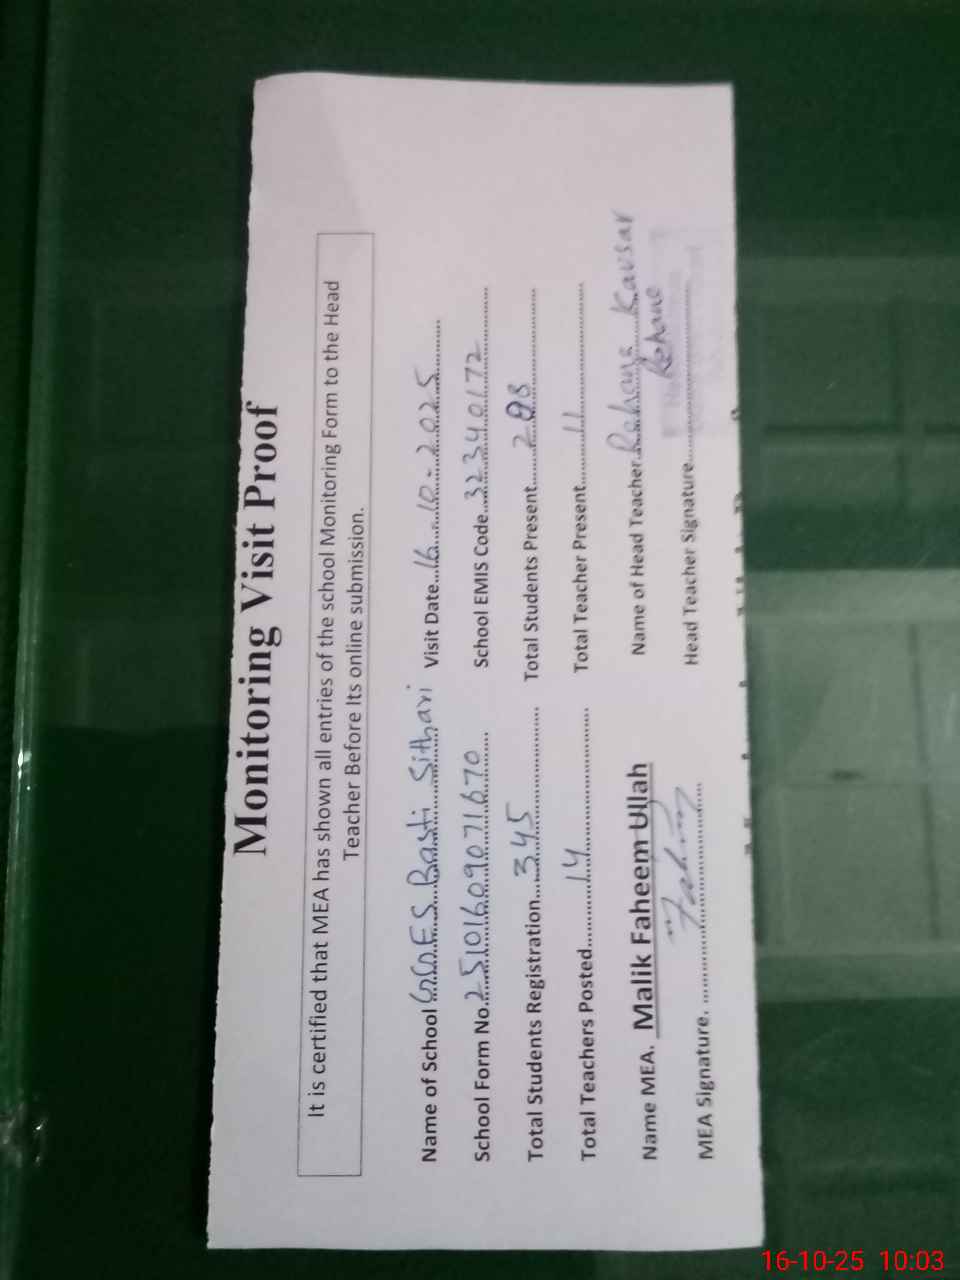 Monitoring Visit Proof
It is certified that MEA has shown all entries of the school Monitoring Form to the Head
Teacher Before Its online submission.
Name of School G.G.E.S Basti Sithari Visit Date 16-10-2025
School Form No. 2510160907 1670 School EMIS Code 32340172
Total Students Registration 345 Total Students Present
Total Teachers Posted 14 Total Teacher Present 11
Name MEA. Malik Faheem Ullah Name of Head Teacher Rehana Kausar
MEA Signature. Fahim Head Teacher Signature Rehana
16-10-25 10:03